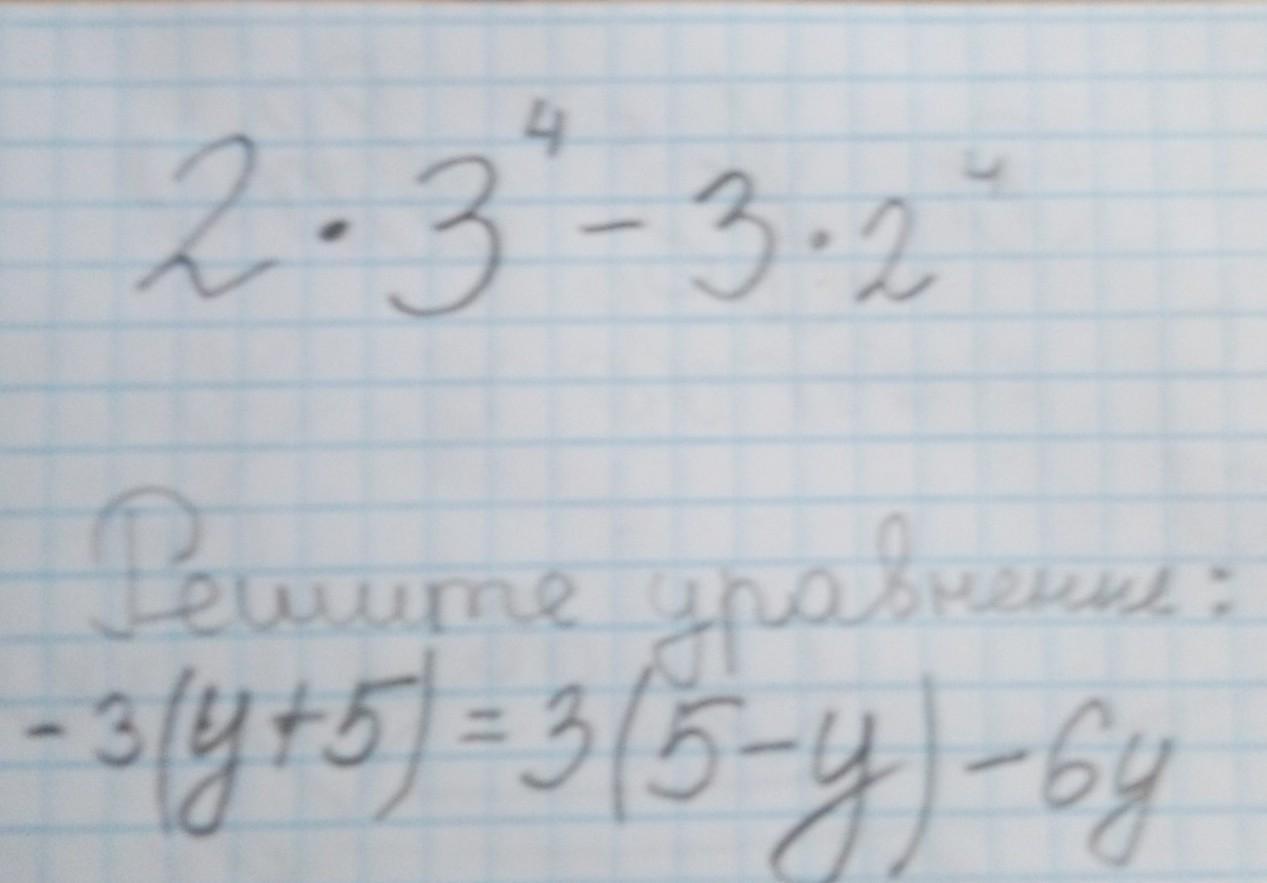 2 · 3⁴ - 3 · 2⁴
Решите уравнение:
-3(y+5)=3(5-y)-6y